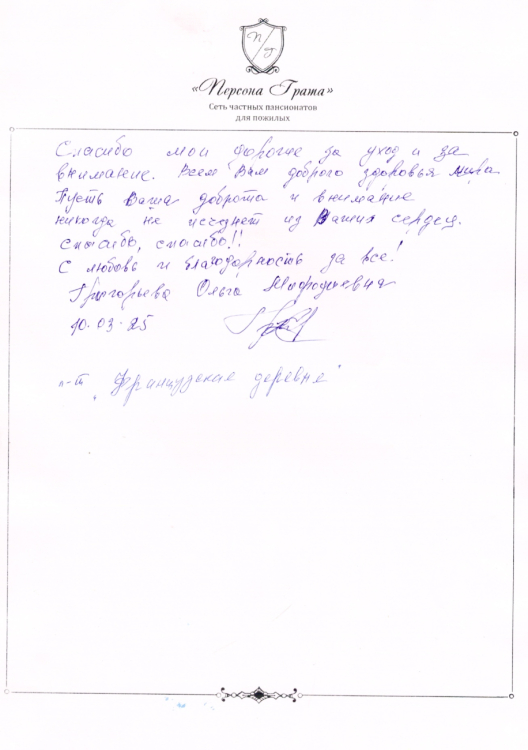 П/Г
«Персона Грата»
Сеть частных пансионатов
для пожилых
Спасибо мои дорогие за уход и за
внимание. Всем Вам доброго здоровья мира
Пусть Ваша доброта и внимание
никогда не исчезнет из Ваших сердец.
спасибо, спасибо!!
С любовь и благодарность за все!
Григорьева Ольга
10.03.25
п-т "Французские деревне"